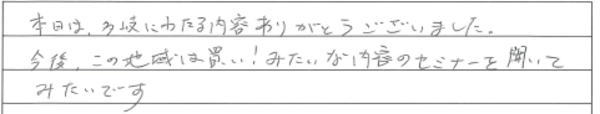 本日は、多岐にわたる内容ありがとうございました。
今後、この地域は買い!みたいな内容のセミナーを聞いて
みたいです